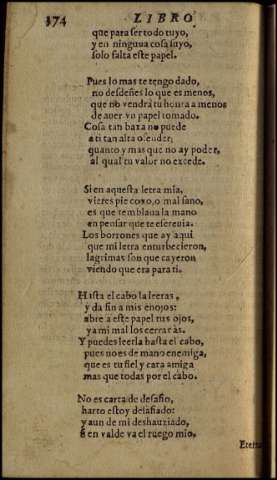 374 LIBRO
que para ser todo tuyo,
y en ninguna cosa suyo,
solo falta este papel.
Pues lo mas te tengo dado,
no desdeñes lo que es menos,
que no vendrá tu honra a menos
de auer vn papel tomado.
Cosa tan baxa no puede
a ti tan alta ofender;
quanto y mas que no ay poder,
al qual tu valor no excede.
Si en aquesta letra mia,
vieres pie coxo, o mal sano,
es que temblaua la mano
en pensar que te escreuia.
Los borrones que ay aqui
que mi letra enturbecieron,
lagrimas son que cayeron
viendo que era para ti.
Hasta el cabo la leeras,
y da fin a mis enojos:
abre a este papel tus ojos,
ya mi mal los cerraràs.
Y puedes leerla hasta el cabo,
pues no es de mano enemiga,
que es tu fiel y cara amiga
mas que todas por el cabo.
No es carta de desafio,
harto estoy desafiado:
y aun de mi deshauziado,
si en valde va el ruego mio.